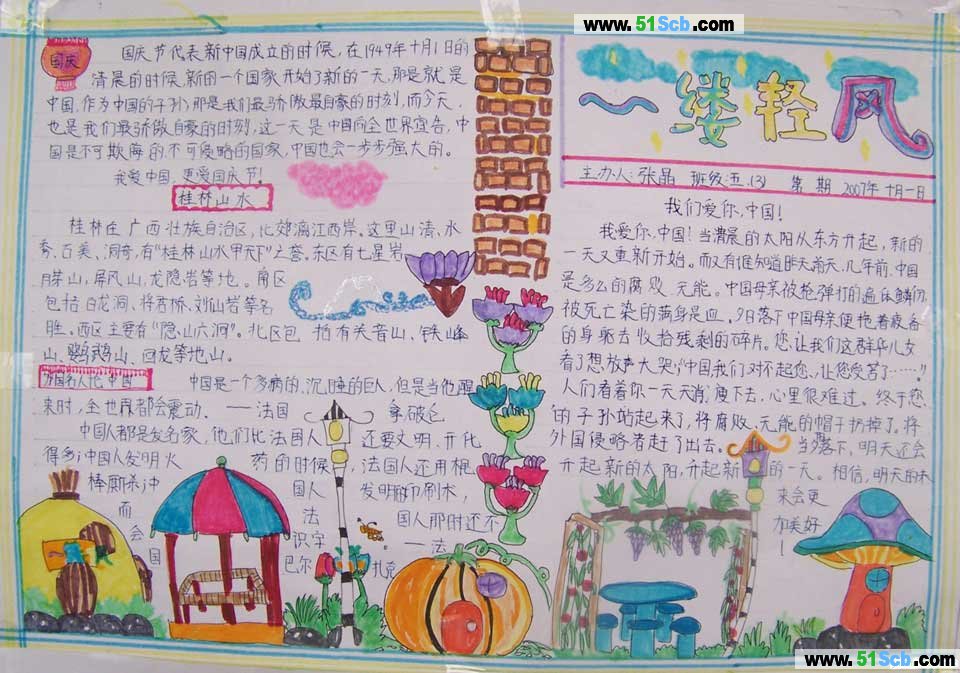 www.51Scb.com
国庆
国庆节代表新中国成立的时候，在1949年十月1日的
清晨的时候，新的一个国家开始了新的一天，那是就是
中国，作为中国的子孙那是我们最骄傲最自豪的时刻，而今天，
也是我们最骄傲自豪的时刻，这一天是中国向全世界宣告，中
国是不可欺侮的，不可侵略的国家，中国也会一步步强大的。
我爱中国，更爱国庆节！
桂林山水
桂林在广西壮族自治区，北郊漓江西岸。这里山清、水
秀、石美、洞奇，有“桂林山水甲天下”之誉。东区有七星岩
月牙山，屏风山，龙隐岩等地。南区
包括白龙洞、将军桥、刘仙岩等名
胜。西区主要有“隐山六洞”。北区包括有关音山、铁峰
山、鹦鹉山、回龙等地山。
外国名人论中国
中国是一个多病的、沉睡的巨人，但是当他醒
来时，全世界都会震动。——法国 拿破仑
中国人都是发名家，他们比法国人还要文明、开化
得多；中国人发明火药的时候，法国人还用棍
棒厮杀；中国人发明印刷术，
而法国人那时还不
会识字——法
国巴尔扎克
一缕轻风
主办人：张晶 班级：五.(3) 第 期 2007年十月一日
我们爱你，中国！
我爱你，中国！当清晨的太阳从东方升起，新的
一天又重新开始。而又有谁知道昨天前天，几年前，中国
是多么的腐败、无能。中国母亲被枪弹打的遍体鳞伤，
被死亡染的满身是血。夕日落下中国母亲便拖着疲备
的身躯去收拾残剩的碎片。您，让我们这群华儿女
看了想放声大哭；“中国我们对不起您，让您受苦了……。”
人们看着你一天天消瘦下去，心里很难过。终于您
的子孙站起来了，将腐败、无能的帽子扔掉了，将
外国侵略者赶了出去。当夕落下，明天还会
升起新的太阳，升起新的一天。相信，明天的未
来会更
加美好
！
www.51Scb.com